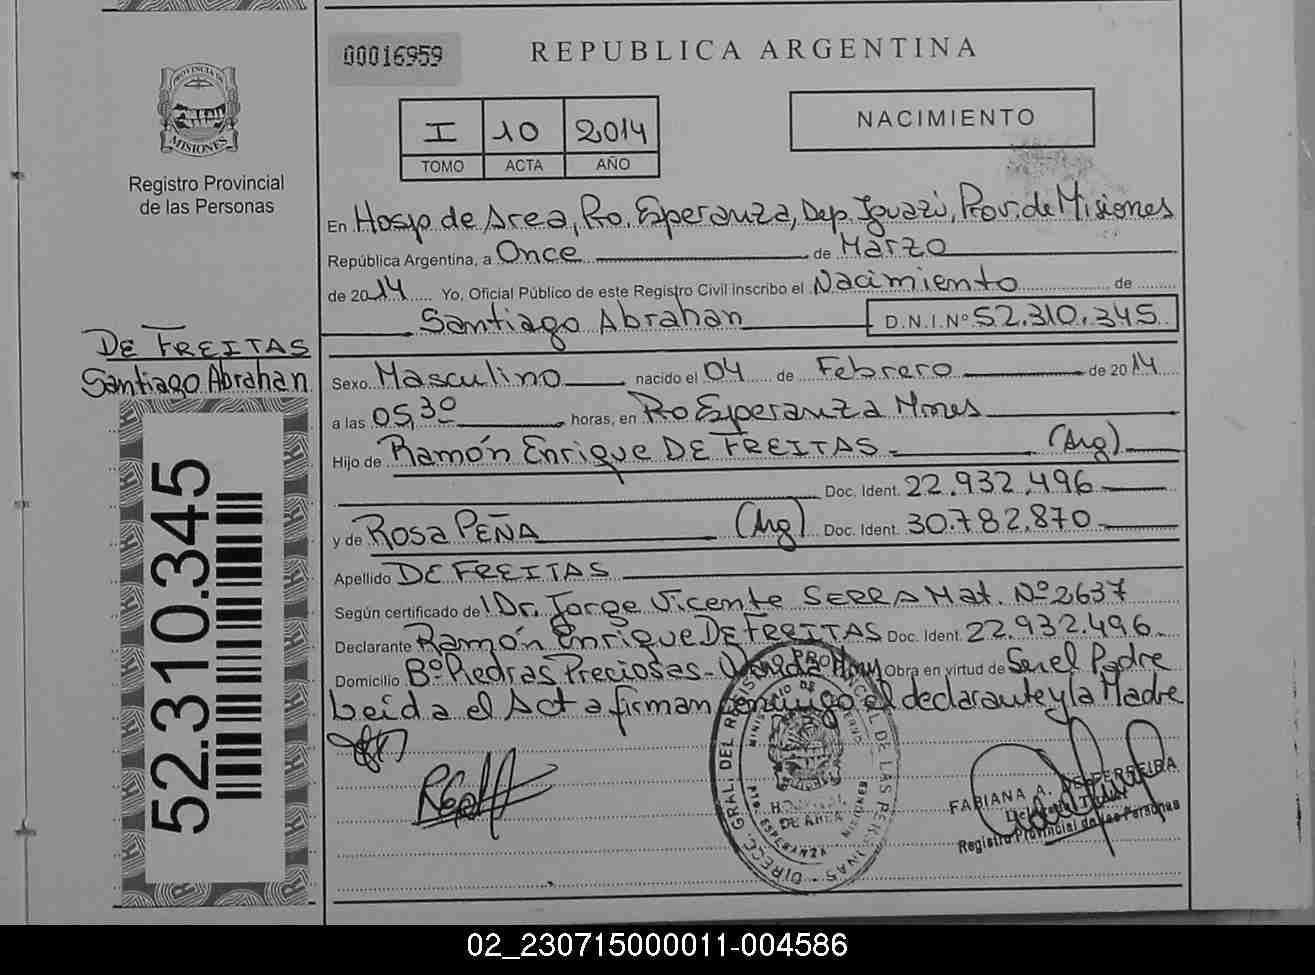 00016959
REPUBLICA ARGENTINA
PROVINCIA DE
MISIONES
Registro Provincial
de las Personas
I 10 2014
TOMO ACTA AÑO
NACIMIENTO
En Hosp de Area, Pto. Esperanza, Dep. Iguazú, Prov. de Misiones
República Argentina, a Once de Marzo
de 2014 Yo, Oficial Público de este Registro Civil inscribo el Nacimiento de
Santiago Abrahan D.N.I. Nº 52.310.345
DE FREITAS
Santiago Abrahan
Sexo Masculino nacido el 04 de Febrero de 2014
a las 05,30 horas, en Pto Esperanza Mnes
Hijo de Ramón Enrique DE FREITAS (Arg)
Doc. Ident. 22.932.496
y de Rosa PEÑA (Arg) Doc. Ident. 30.782.870
Apellido DE FREITAS
Según certificado de l Dr. Jorge Vicente SERRA Mat. Nº 2637
Declarante Ramón Enrique DE FREITAS Doc. Ident. 22.932.496
Domicilio Bº Piedras Preciosas - Obra en virtud de Ser el Padre
Leida el Acta firman conmigo el declarante y la Madre
52.310.345
DIRECC. GRAL. DEL REGISTRO PROVINCIAL DE LAS PERSONAS
HOSPITAL
DE AREA
PTO. ESPERANZA
MISIONES
FABIANA A. DE FERREIRA
Registro Provincial de las Personas
02_230715000011-004586